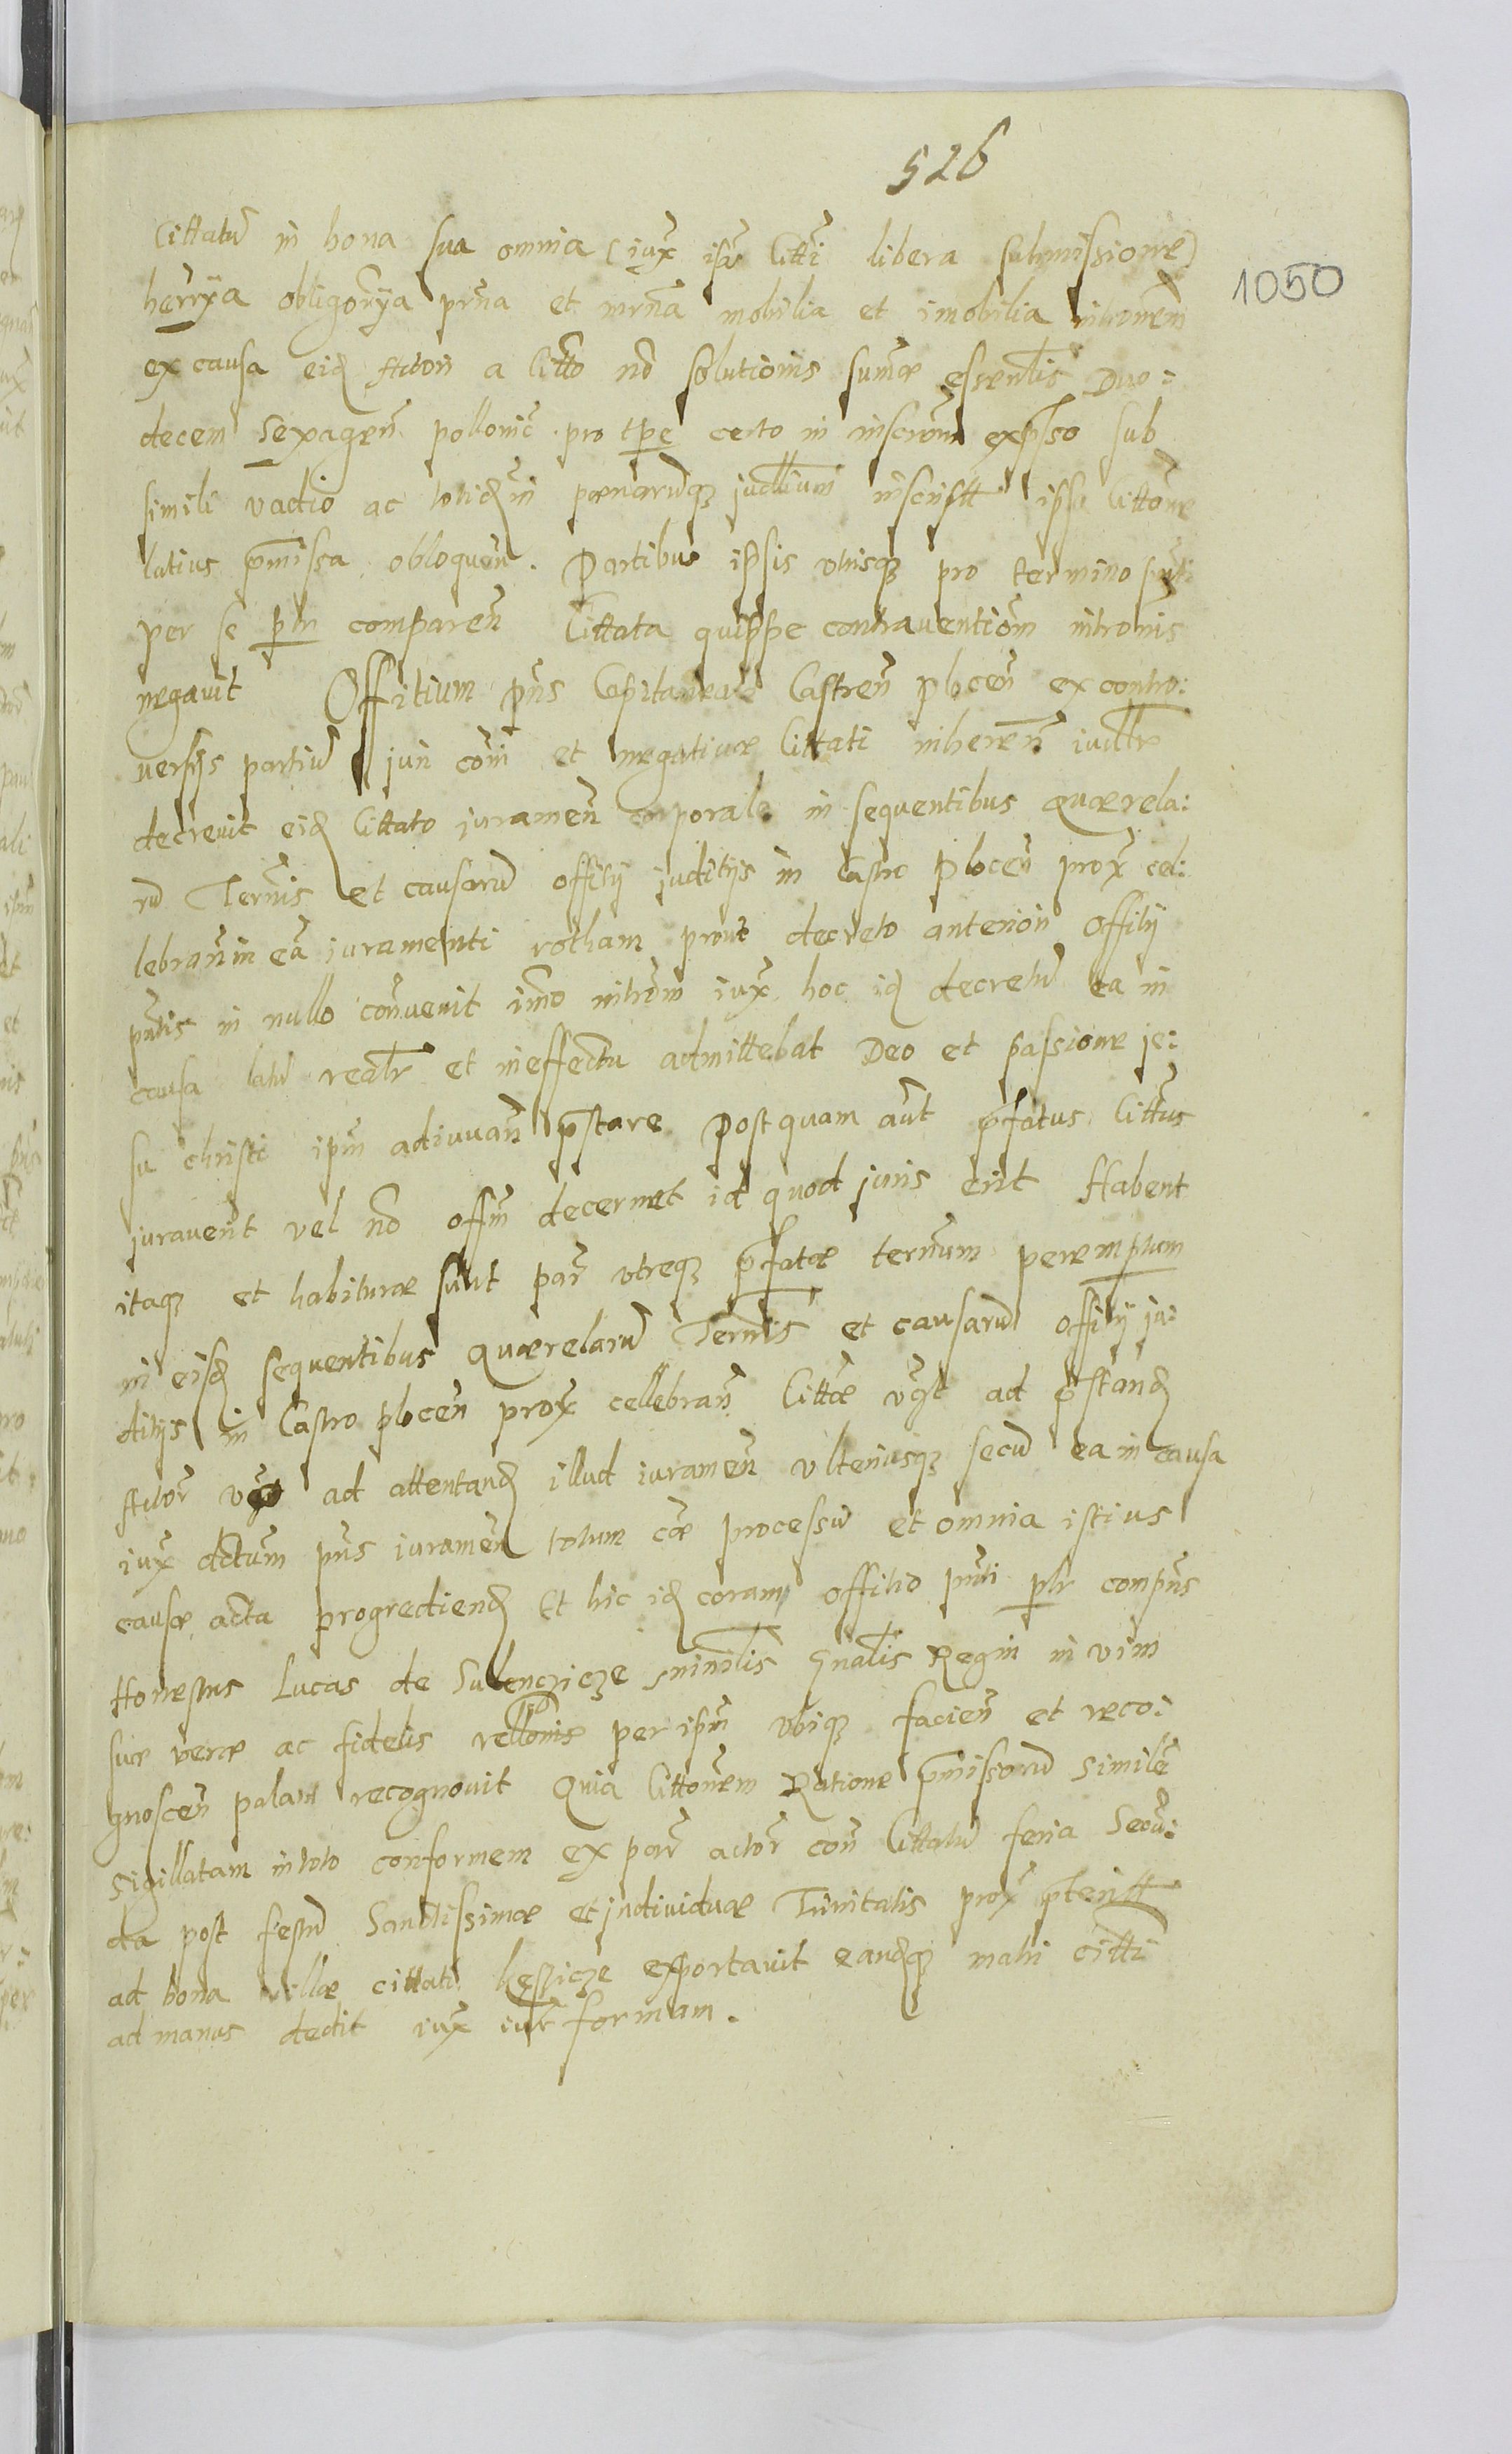 526
1050
Cittatũ in bona sua omnia (iux̃ ip̃ Citti libera submissione)
herrxa obligorỹa pr̃na et mr̃na mobilia et imobilia intromem̃
ex causa eid Actori a Citto nõ solutionis sum̃æ essentlis Duo:
decem Sexagen̄ pollonic̃ pro tp̱e certo in inscrom̃ exp̱sso sub
simili vadio ac totid̃m pœnarumq̃ judliumi inscriptt ipsa Cittone
latius p̃missa obloquen̄. Partibus ip̃sis utrisq̃ pro termino pñti
per se p̱lr comparen̄ Cittata quippe contraventiom̃ intromis
negavit Offitium pñs Capitaneale Castren̄ Plocen̄ ex contro:
versijs partiũ juri com̃ et negativæ Cittati inheren̄ iudlr
decrevit eid Cittato juramen̄ corporale in sequentibus quærela:
rũ Termĩs et causarũ offitij juditijs in Castro Plocen̄ prox̃ cel:
lebran̄ in eã iuramenti rotham prout decreto anteriori Offitij
pñtis in nullo conuenit imo introm̃ iux̃ hoc id decretũ ea in
causa latũ realr̃ et in effectu admittebat Deo et passione je:
su christi ipm̃ adiuuan̄ p̃stare Postquam aũt p̃fatus Cittus
juraverit vel nõ offm̃ decernet id quod juris erit Habent
itaq̃ et habituræ sunt par̃ utræq̃ p̃fatæ termum peremptum
in eisd sequentibus quærelarũ Termĩs et causarũ offitij ju:
ditijs in Castro plocen̄ prox̃ cellebran̄ Cittæ vg̃t ad p̃stand
Actor̃ vg̃o ad attentand illud iuramen̄ ulteriusq̃ secũ ea in causa
iux̃ dctum̃ pñs iuramen̄ totum cæ processũ et omnia istius
causæ acta progrediend Et hic id coram offitio pñti p̱lr compñs
Honestus Lucas de Sulenczicze minilis Gnalis Regni in vim
suæ veræ ac fidelis rellonis per ipm̃ ubiq̃ facien̄ et reco:
gnoscen̄ palam recognovit Quia Cittonem Ratione p̃missorũ similẽ
Sigillatam in toto conformem ex par̃ actor̃ con̄ Cittatũ feria Secũ:
da post festũ Sanctissimæ et individuæ Trinitatis prox̃ p̃teritt
ad bona villæ cittati exportavit eandq̃ mãri citti
ad manus dedit iux̃ iur̃ formam.